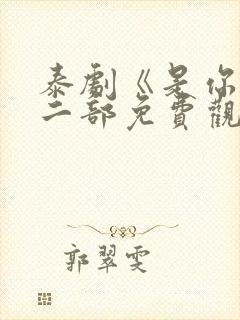 泰劇《是你
二部免費觀
郭翠雯